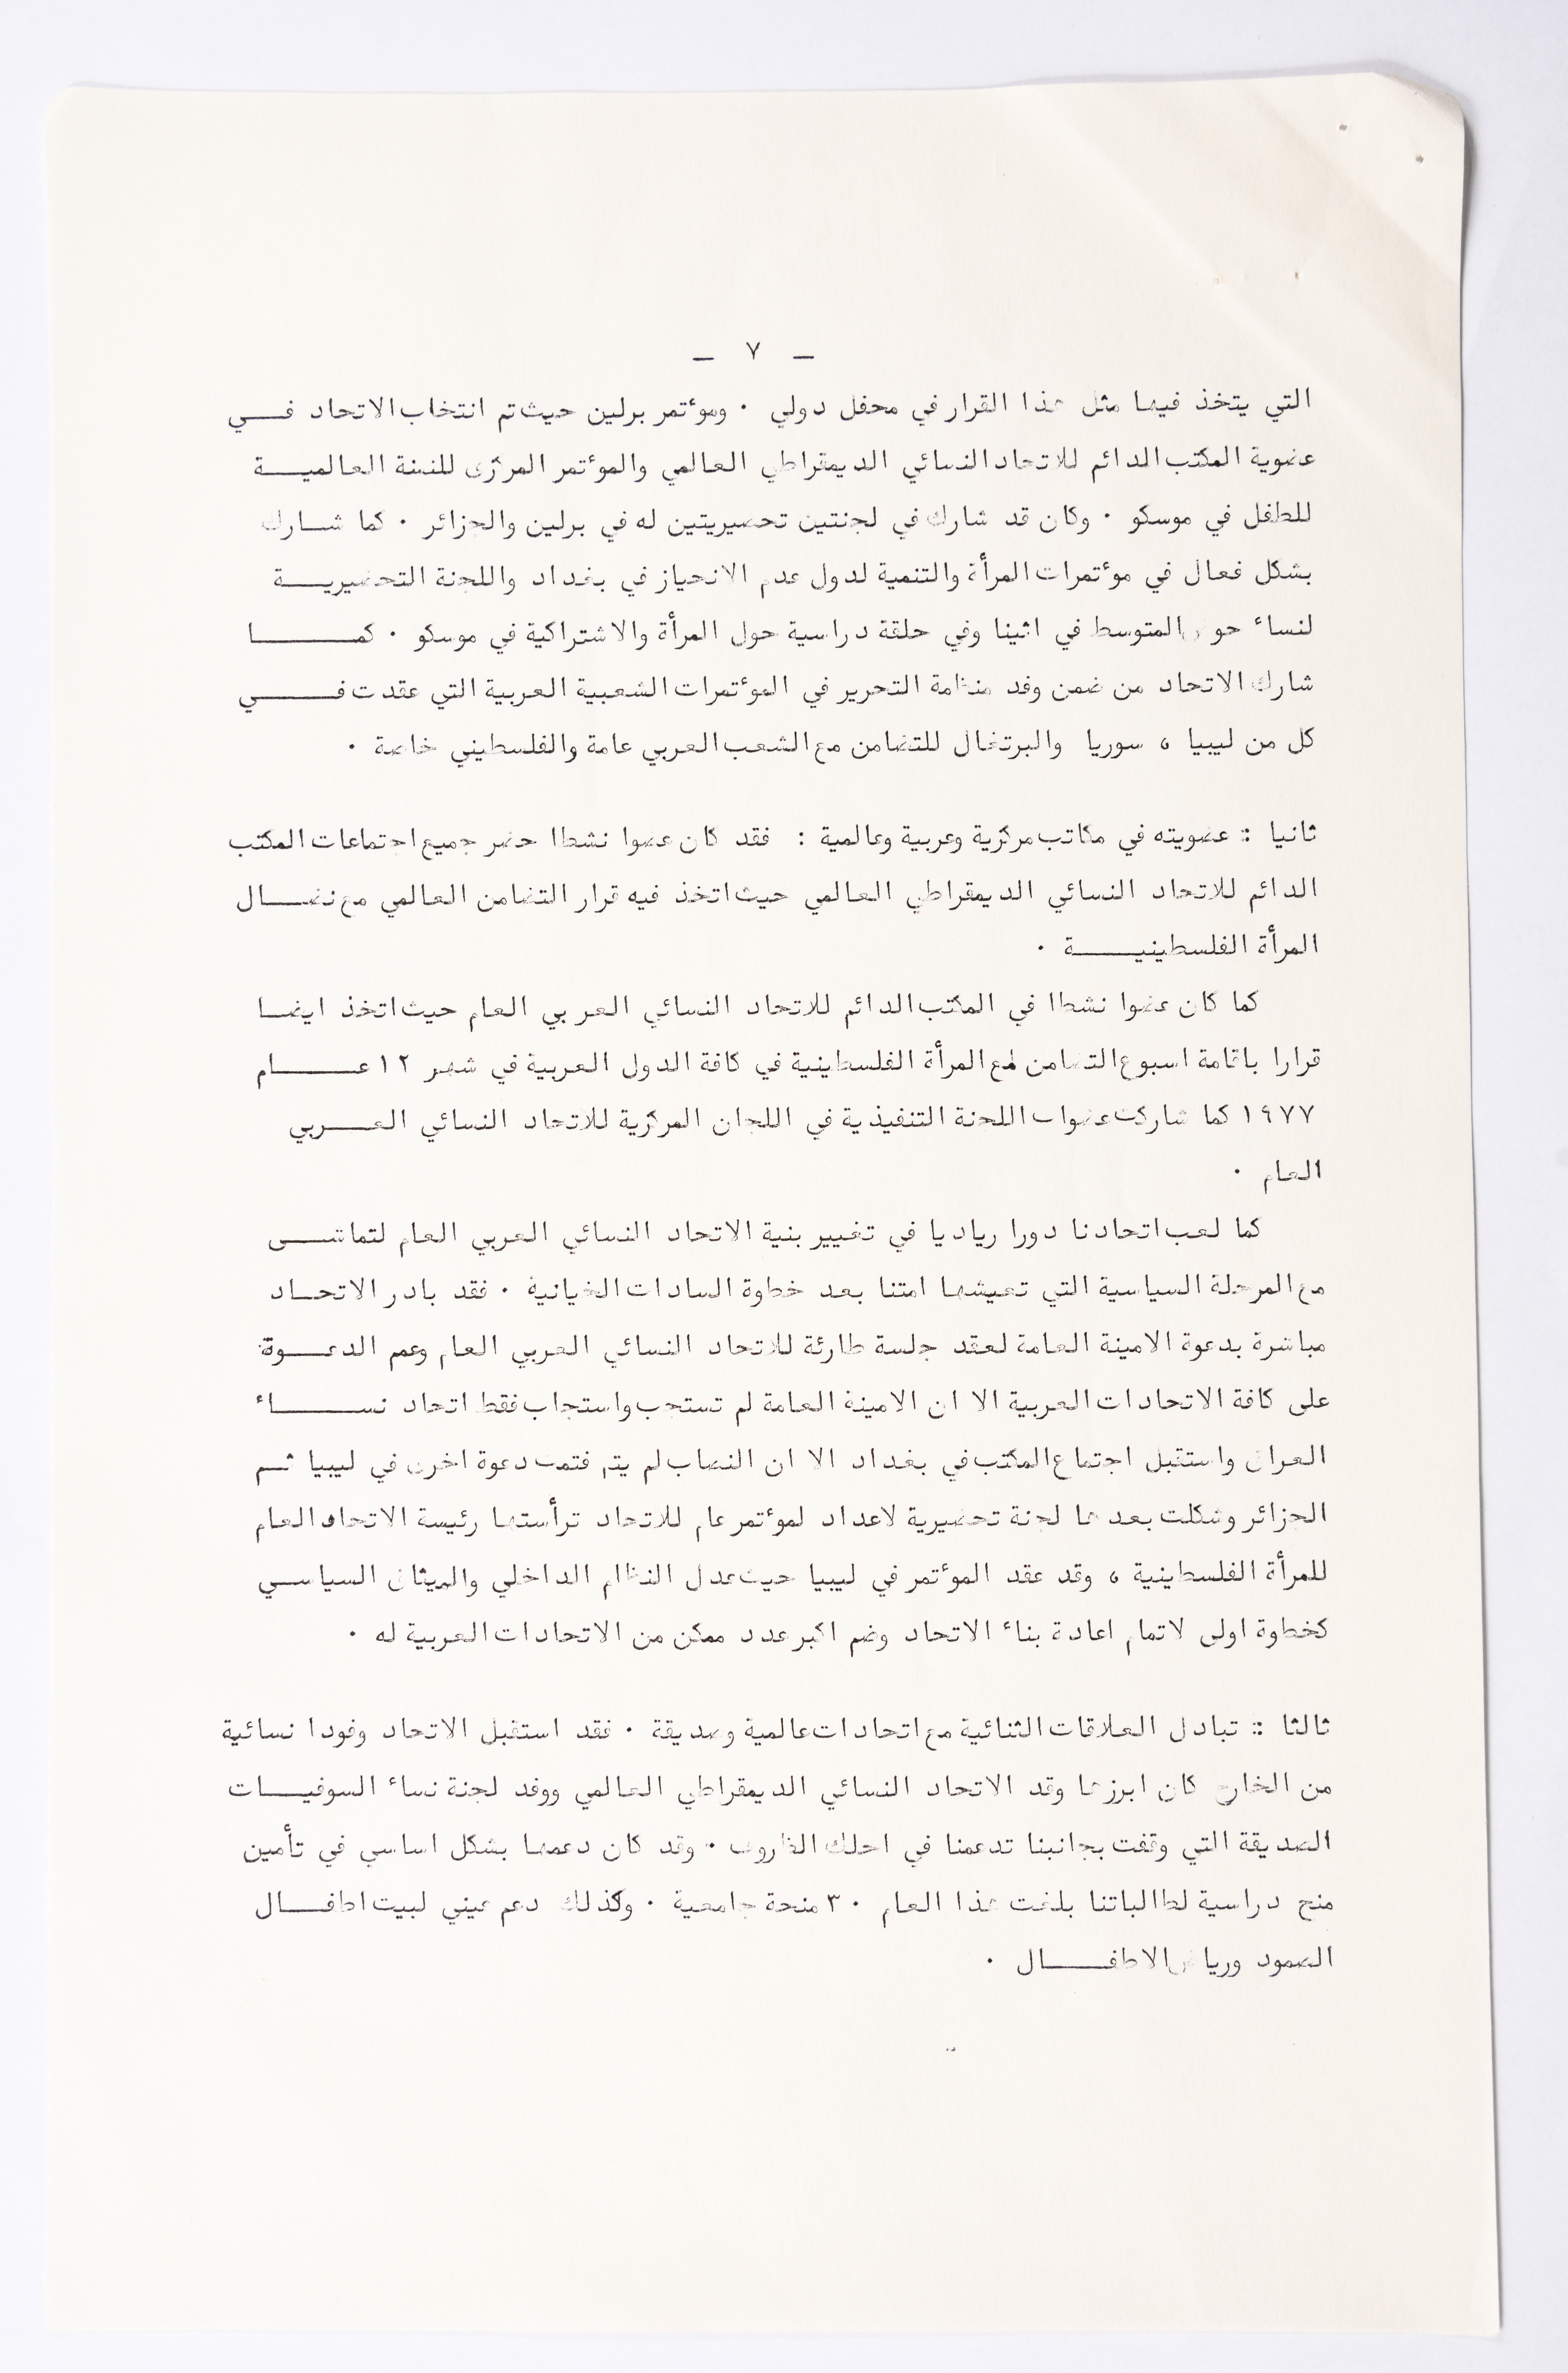 — ٧ —
التي يتخذ فيها مثل هذا القرار في محفل دولي . ومؤتمر برلين حيث تم انتخاب الاتحاد فـــي
عضوية المكتب الدائم للاتحاد النسائي الديمقراطي العالمي والمؤتمر المركزى للسنة العالميـــة
للطفل في موسكو . وكان قد شارك في لجنتين تحضيريتين له في برلين والجزائر . كما شــارك
بشكل فعال في مؤتمرات المرأة والتنمية لدول عدم الانحياز في بغداد واللجنة التحضيريـــة
لنساء حوض المتوسط في اثينا وفي حلقة دراسية حول المرأة والاشتراكية في موسكو . كمـــــا
شارك الاتحاد من ضمن وفد منظمة التحرير في المؤتمرات الشعبية العربية التي عقدت فـــــي
كل من ليبيا ، سوريا والبرتغال للتضامن مع الشعب العربي عامة والفلسطيني خاصة .
ثانيا :: عضويته في مكاتب مركزية وعربية وعالمية : فقد كان عضوا نشطا حضر جميع اجتماعات المكتب
الدائم للاتحاد النسائي الديمقراطي العالمي حيث اتخذ فيه قرار التضامن العالمي مع نضـــال
المرأة الفلسطينيـــــة .
كما كان عضوا نشطا في المكتب الدائم للاتحاد النسائي العربي العام حيث اتخذ ايضــا
قرارا باقامة اسبوع التضامن مع المرأة الفلسطينية في كافة الدول العربية في شهر ١٢ عـــــام
١٩٧٧ كما شاركت عضوات اللجنة التنفيذية في اللجان المركزية للاتحاد النسائي العـــربي
العام .
كما لعب اتحادنا دورا رياديا في تغيير بنية الاتحاد النسائي العربي العام لتماشـــى
مع المرحلة السياسية التي تعيشها امتنا بعد خطوة السادات الخيانية . فقد بادر الاتحــاد
مباشرة بدعوة الامينة العامة لعقد جلسة طارئة للاتحاد النسائي العربي العام وعمم الدعـــوة
على كافة الاتحادات العربية الا ان الامينة العامة لم تستجب واستجاب فقط اتحاد نســـــاء
العراق واستقبل اجتماع المكتب في بغداد الا ان النصاب لم يتم فتمت دعوة اخرى في ليبيا ثــم
الجزائر وشكلت بعدها لجنة تحضيرية لاعداد لمؤتمر عام للاتحاد ترأستها رئيسة الاتحاد العام
للمرأة الفلسطينية ، وقد عقد المؤتمر في ليبيا حيث عدل النظام الداخلي والميثاق السياســي
كخطوة اولى لاتمام اعادة بناء الاتحاد وضم اكبر عدد ممكن من الاتحادات العربية له .
ثالثا :: تبادل العلاقات الثنائية مع اتحادات عالمية وصديقة . فقد استقبل الاتحاد وفودا نسائية
من الخارج كان ابرزها وفد الاتحاد النسائي الديمقراطي العالمي ووفد لجنة نساء السوفيــات
الصديقة التي وقفت بجانبنا تدعمنا في احلك الظروف . وقد كان دعمها بشكل اساسي في تأمين
منح دراسية لطالباتنا بلغت هذا العام ٣٠ منحة جامعية . وكذلك دعم عيني لبيت اطفـــال
الصمود ورياض الاطفـــــال .